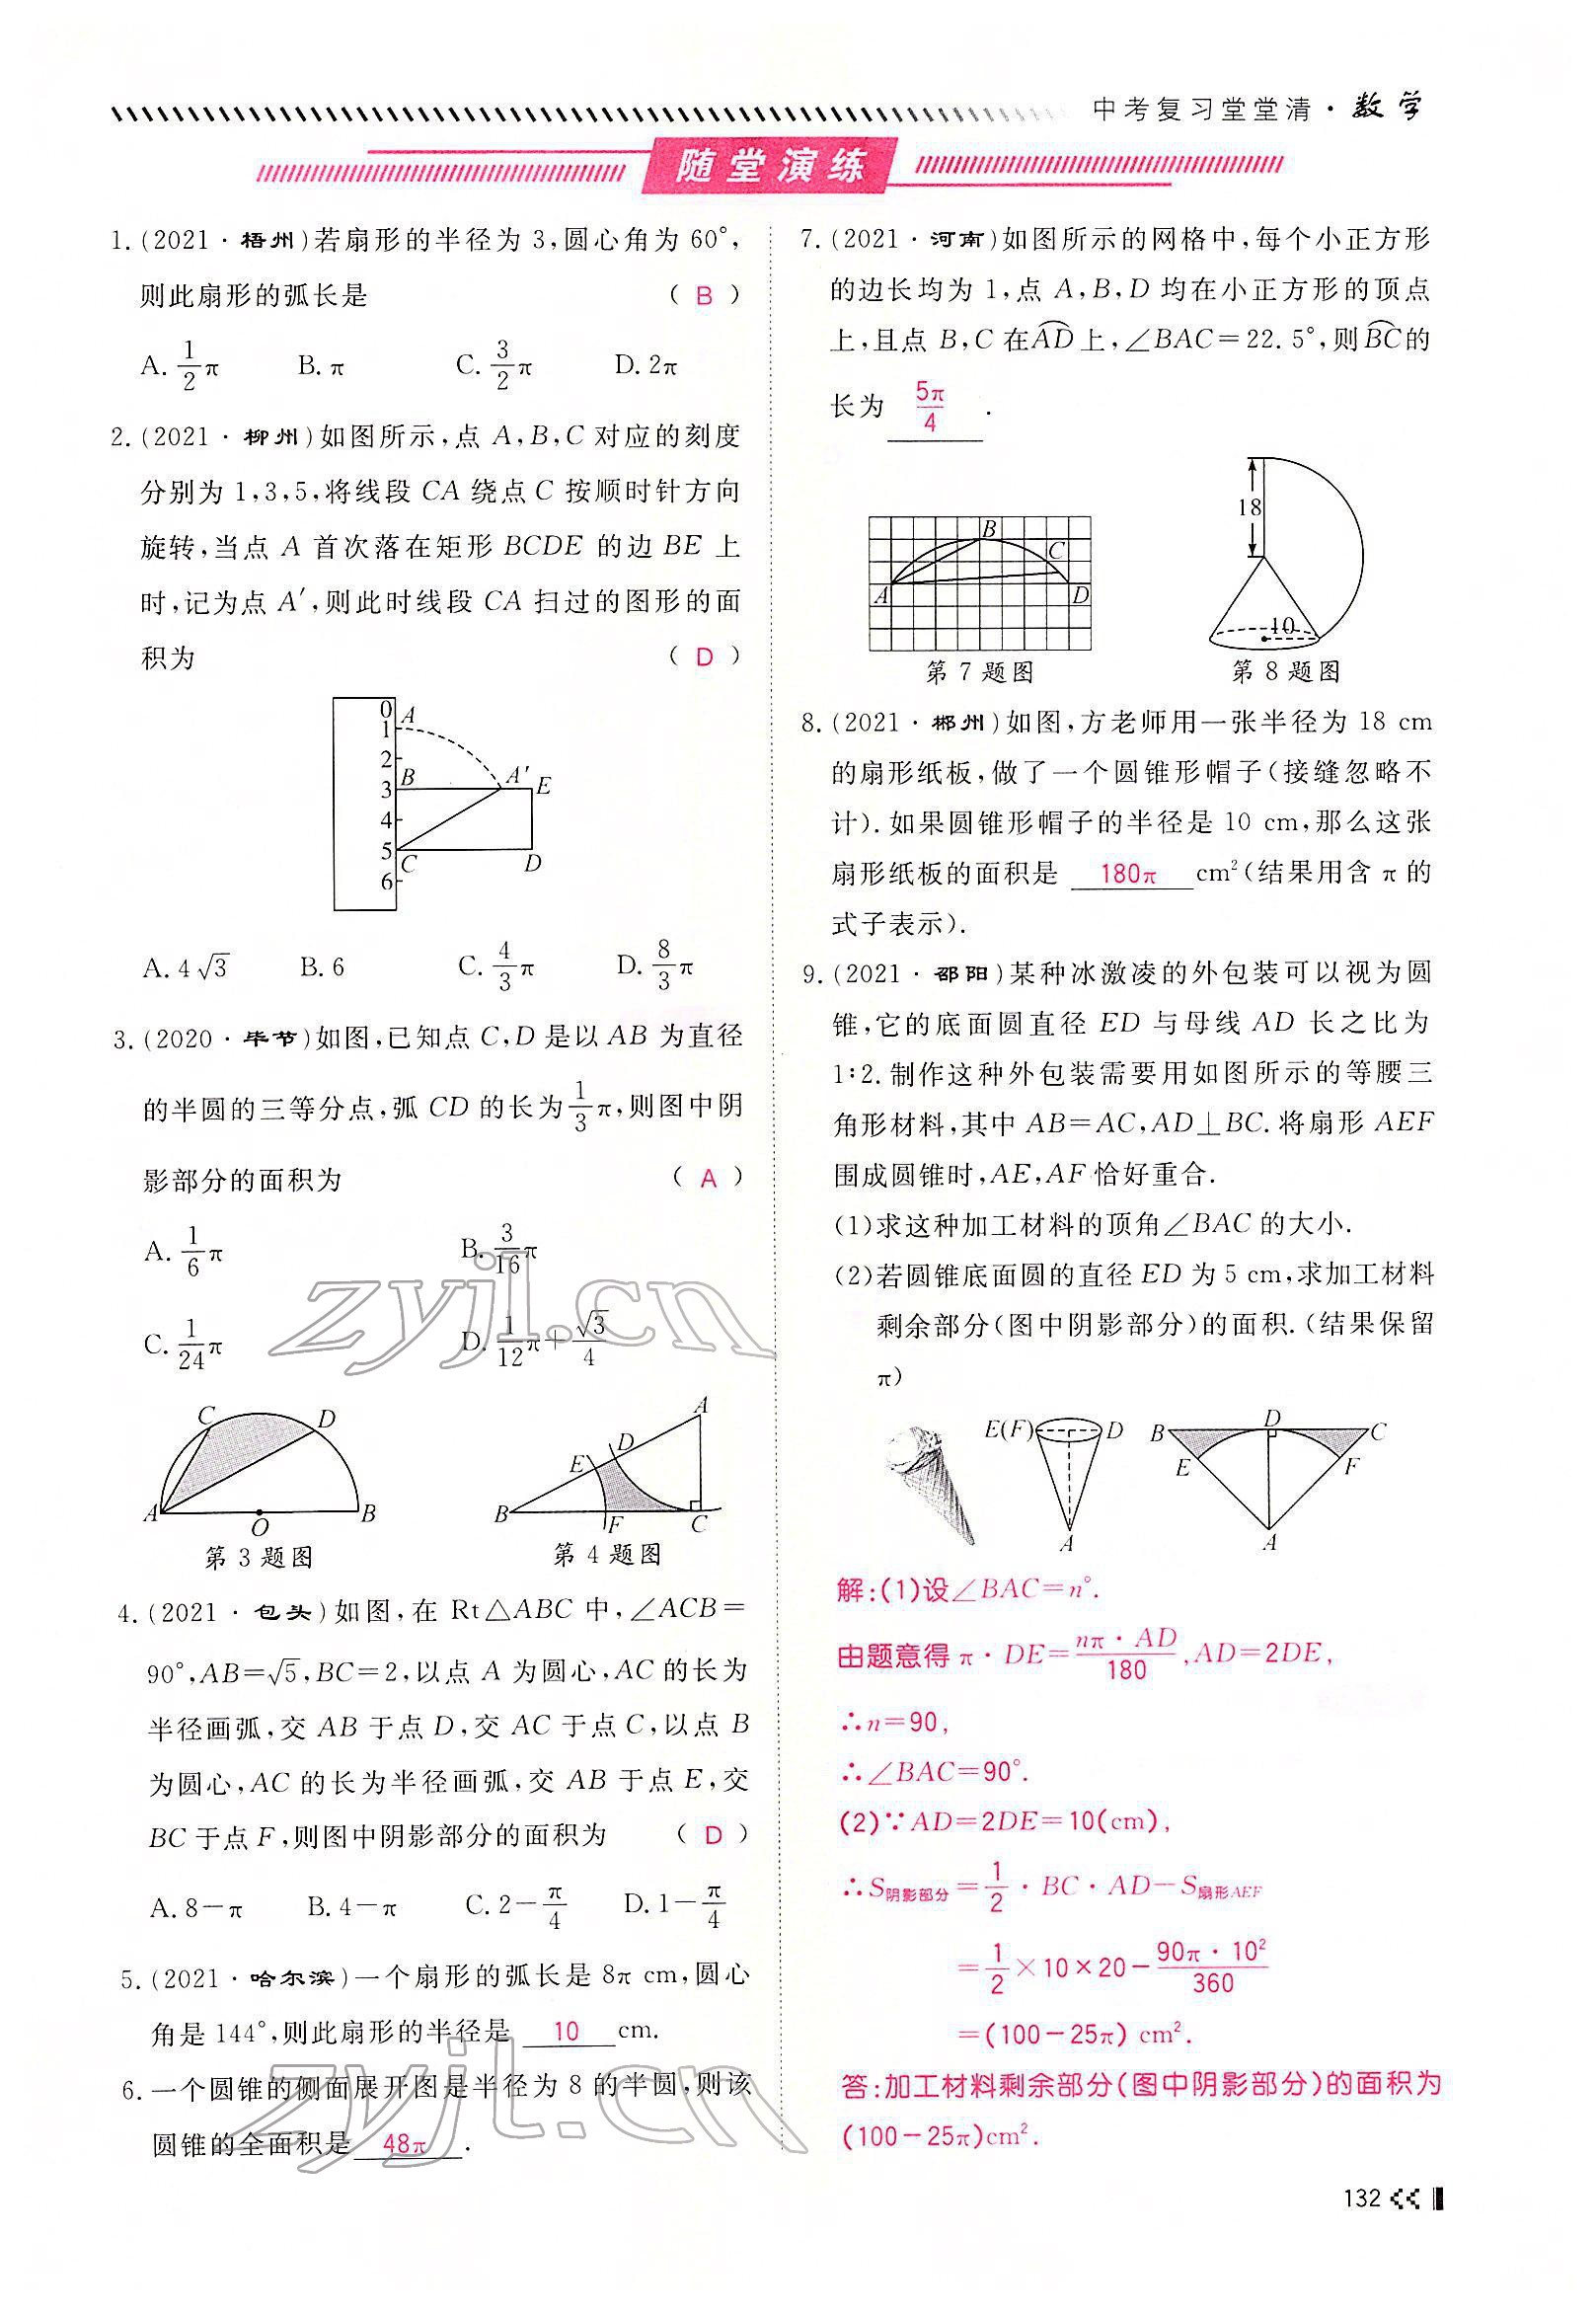 中考复习堂堂清·数学
随堂演练
1.(2021·梧州)若扇形的半径为 3,圆心角为 60°,
则此扇形的弧长是 ( B )
A. 1/2 π B. π C. 3/2 π D. 2π
2.(2021·柳州)如图所示,点 A,B,C 对应的刻度
分别为 1,3,5,将线段 CA 绕点 C 按顺时针方向
旋转,当点 A 首次落在矩形 BCDE 的边 BE 上
时,记为点 A′,则此时线段 CA 扫过的图形的面
积为 ( D )
0 A
1
2
B A′ E
3
4
5
C D
6
A. 4√3 B. 6 C. 4/3 π D. 8/3 π
3.(2020·毕节)如图,已知点 C,D 是以 AB 为直径
的半圆的三等分点,弧 CD 的长为 1/3 π,则图中阴
影部分的面积为 ( A )
A. 1/6 π B. 3/16 π
C. 1/24 π D. 1/12 π + √3/4
zyjl.cn
C D A O B
A D E B F C
第 3 题图 第 4 题图
4.(2021·包头)如图,在 Rt△ABC 中,∠ACB=
90°,AB=√5,BC=2,以点 A 为圆心,AC 的长为
半径画弧,交 AB 于点 D,交 AC 于点 C,以点 B
为圆心,AC 的长为半径画弧,交 AB 于点 E,交
BC 于点 F,则图中阴影部分的面积为 ( D )
A. 8-π B. 4-π C. 2-π/4 D. 1-π/4
5.(2021·哈尔滨)一个扇形的弧长是 8π cm,圆心
角是 144°,则此扇形的半径是 10 cm.
6.一个圆锥的侧面展开图是半径为 8 的半圆,则该
圆锥的全面积是 48π .
zyjl.cn
7.(2021·河南)如图所示的网格中,每个小正方形
的边长均为 1,点 A,B,D 均在小正方形的顶点
上,且点 B,C 在 AD⌒ 上,∠BAC=22.5°,则 BC⌒ 的
长为 5π/4 .
B C A D
18 10
第 7 题图 第 8 题图
8.(2021·郴州)如图,方老师用一张半径为 18 cm
的扇形纸板,做了一个圆锥形帽子(接缝忽略不
计).如果圆锥形帽子的半径是 10 cm,那么这张
扇形纸板的面积是 180π cm²(结果用含 π 的
式子表示).
9.(2021·邵阳)某种冰激凌的外包装可以视为圆
锥,它的底面圆直径 ED 与母线 AD 长之比为
1∶2.制作这种外包装需要用如图所示的等腰三
角形材料,其中 AB=AC,AD⊥BC.将扇形 AEF
围成圆锥时,AE,AF 恰好重合.
(1)求这种加工材料的顶角∠BAC 的大小.
(2)若圆锥底面圆的直径 ED 为 5 cm,求加工材料
剩余部分(图中阴影部分)的面积.(结果保留
π)
E(F) D A
B D C E F A
解:(1)设∠BAC=n°.
由题意得 π·DE=nπ·AD/180,AD=2DE,
∴n=90,
∴∠BAC=90°.
(2)∵AD=2DE=10(cm),
∴S阴影部分=1/2·BC·AD-S扇形AEF
=1/2×10×20-90π·10²/360
=(100-25π) cm².
答:加工材料剩余部分(图中阴影部分)的面积为
(100-25π)cm².
132